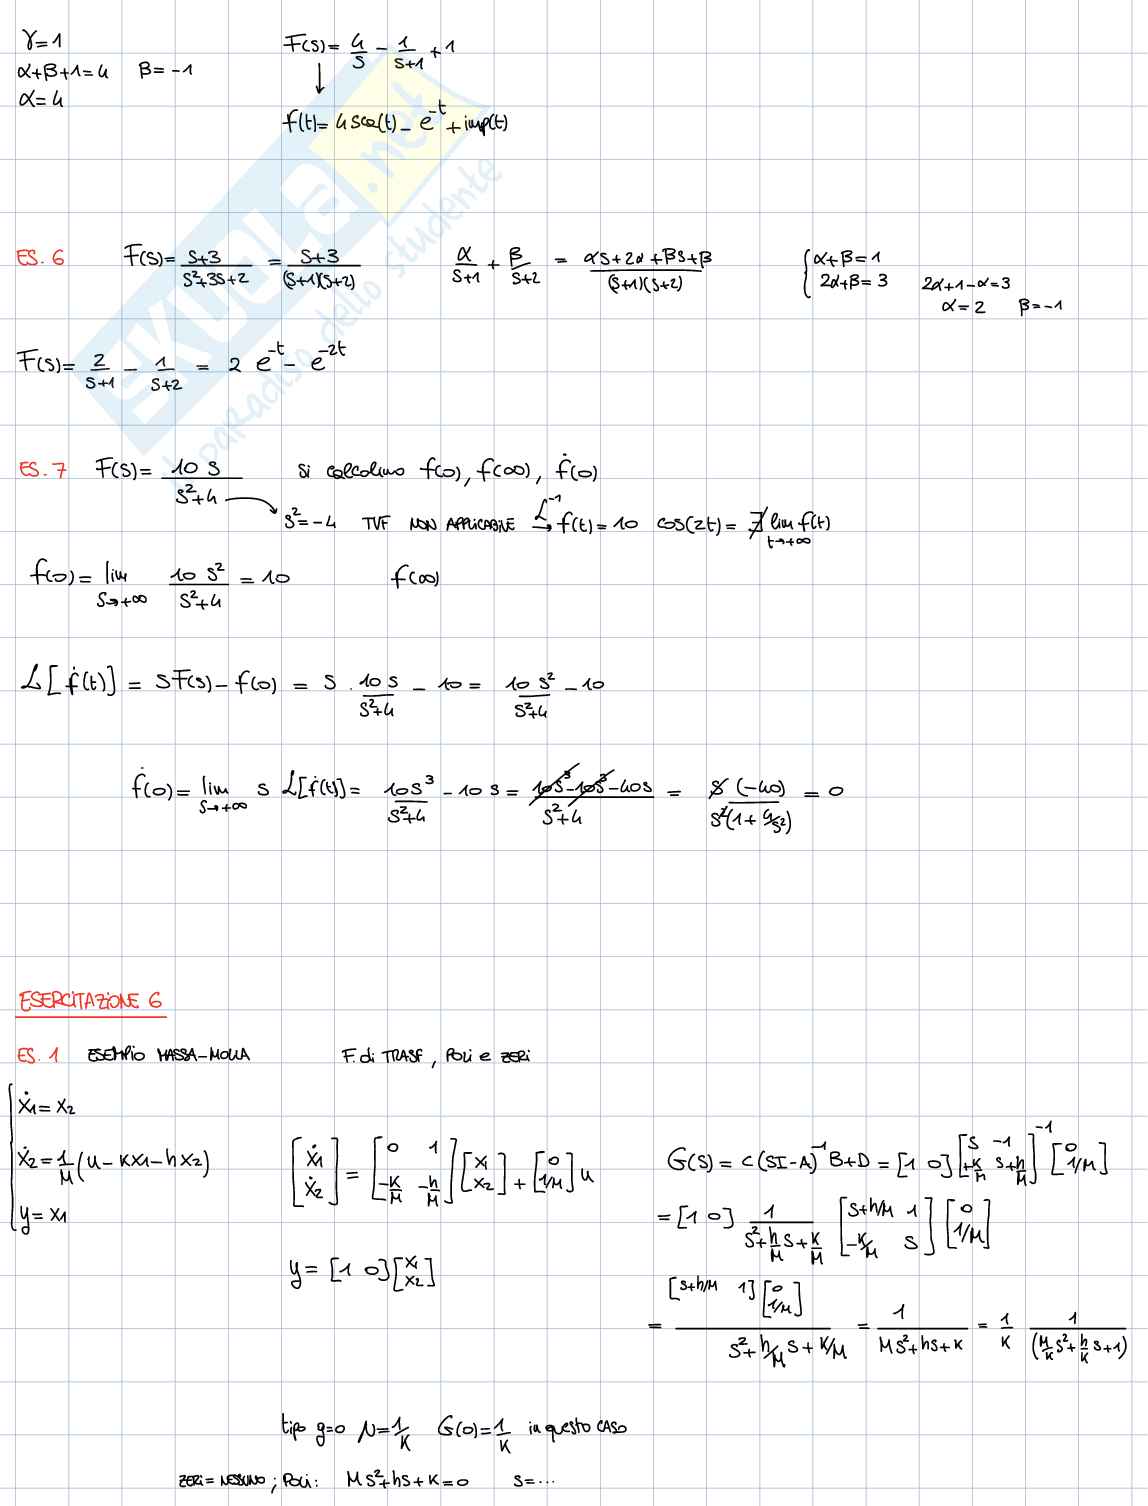 γ=1
α+β+1=4 β=-1
α=4
F(s)= 4/s - 1/(s+1) + 1
↓
f(t)= 4 sca(t) - e^-t + imp(t)
ES. 6 F(s)= (s+3)/(s²+3s+2) = (s+3)/((s+1)(s+2)) α/(s+1) + β/(s+2) = (αs+2α+βs+β)/((s+1)(s+2)) { α+β=1
2α+β=3 2α+1-α=3
α=2 β=-1
F(s)= 2/(s+1) - 1/(s+2) = 2 e^-t - e^-2t
ES. 7 F(s)= 10 s/(s²+4) si calcolino f(0), f(∞), ḟ(0)
s²=-4 TVF NON APPLICABILE L^-1 → f(t)=10 cos(2t)= ∄ lim t→+∞ f(t)
f(0)= lim s→+∞ 10 s²/(s²+4) = 10 f(∞)
L[ḟ(t)] = sF(s)-f(0) = s · 10 s/(s²+4) - 10 = 10 s²/(s²+4) - 10
ḟ(0)= lim s→+∞ s L[ḟ(t)]= 10s³/(s²+4) - 10 s = (10s³-10s³-40s)/(s²+4) = s(-40)/(s²(1+4/s²)) = 0
ESERCITAZIONE 6
ES. 1 ESEMPIO MASSA-MOLLA F. di TRASF, POLI e ZERI
ẋ1=x2
ẋ2=1/M(u-Kx1-hx2)
y=x1
[ẋ1 ẋ2] = [0 1; -K/M -h/M][x1 x2] + [0 1/M]u
y=[1 0][x1 x2]
G(s)= C(sI-A)^-1 B+D = [1 0][s -1; +K/M s+h/M]^-1 [0 1/M]
=[1 0] 1/(s²+h/M s+K/M) [s+h/M 1; -K/M s][0 1/M]
= [s+h/M 1][0 1/M]/(s²+h/M s+K/M) = 1/(Ms²+hs+K) = 1/K 1/(M/K s²+h/K s+1)
tipo g=0 μ=1/K G(0)=1/K in questo CASO
ZERI=NESSUNO; POLI: Ms²+hs+K=0 s=...
SKUOLA.net
il paradiso dello studente